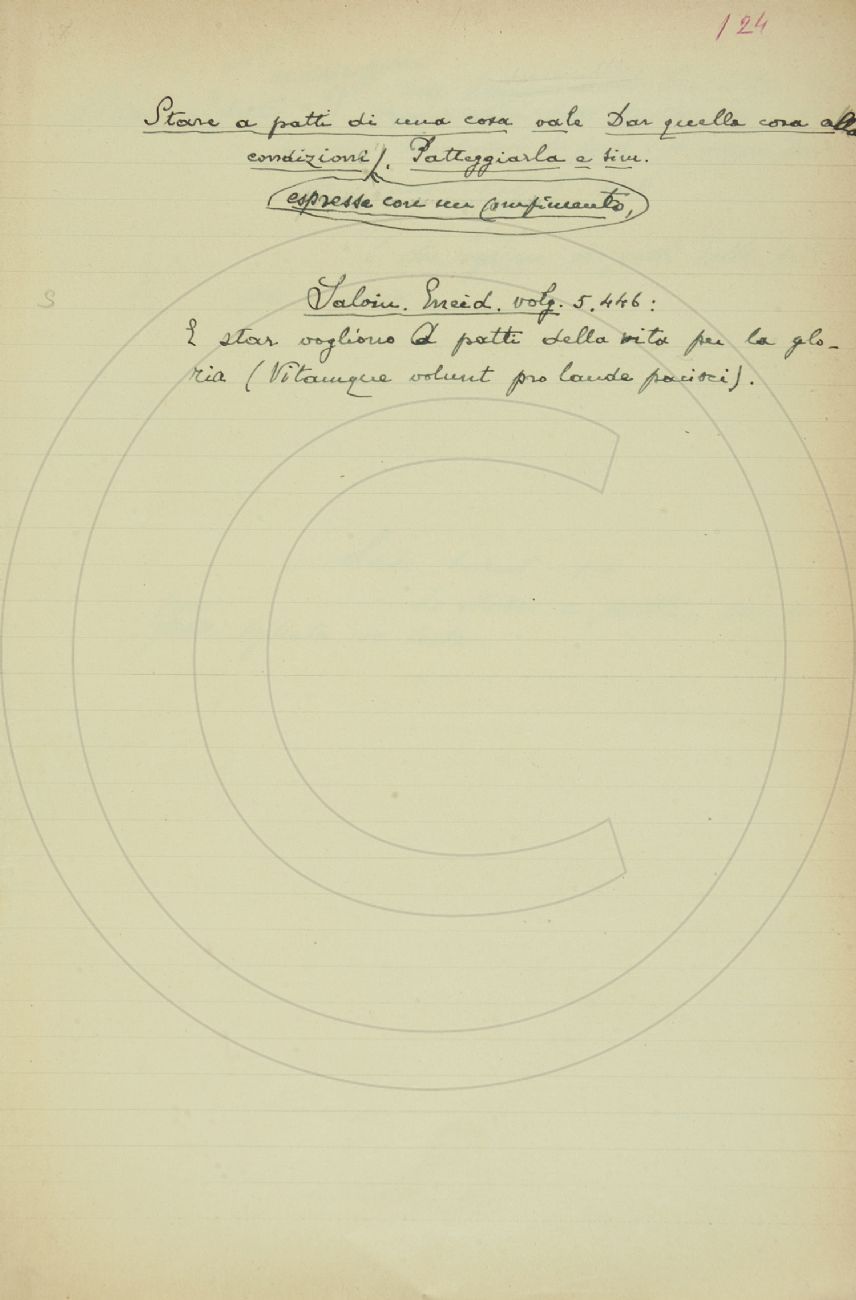 124
Stare a patti di una cosa vale Dar quella cosa alle
condizioni). Patteggiarla e sim.
espresse con un compimento,
S
Salvin. Eneid. volg. 5.446:
E star vogliono A patti della vita per la glo-
ria (Vitamque volunt pro laude pacisci).
C